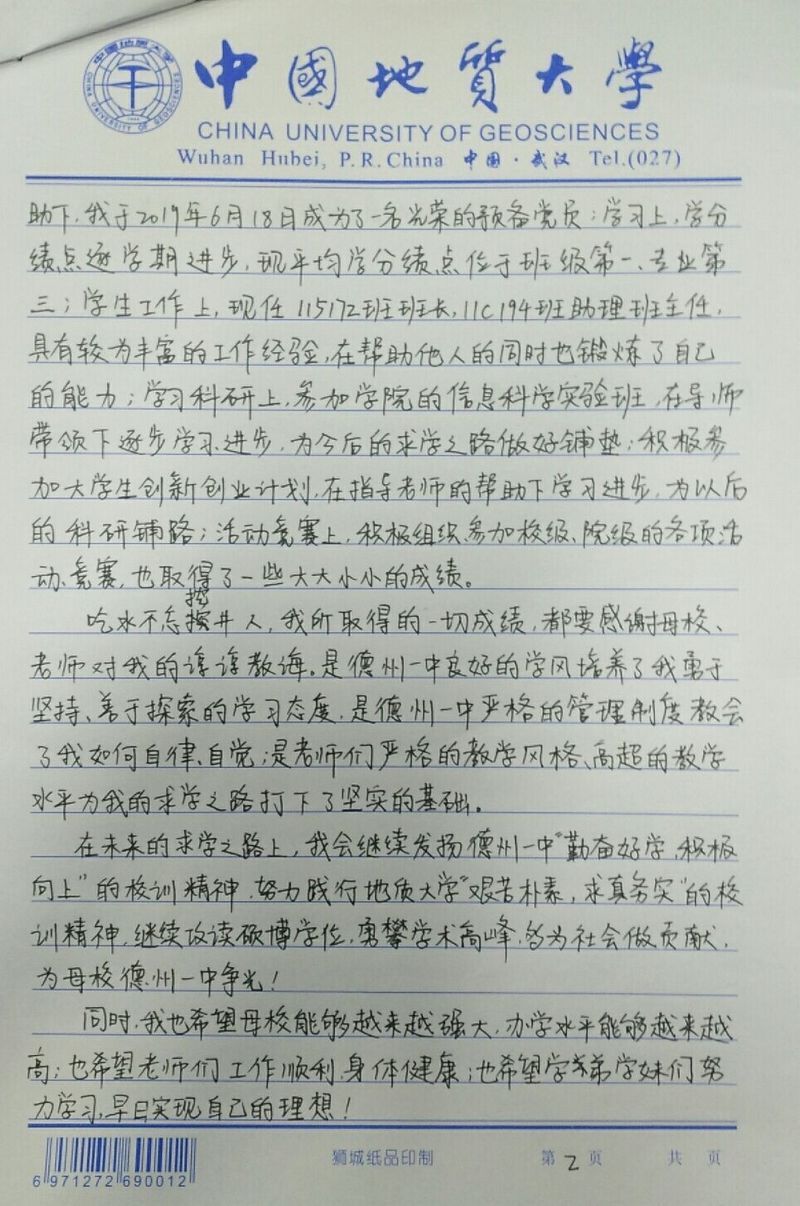 中國地質大學
CHINA UNIVERSITY OF GEOSCIENCES
Wuhan Hubei, P.R.China 中国·武汉 Tel.(027)
助下,我于2019年6月18日成为了一名光荣的预备党员;学习上,学分
绩点逐学期进步,现平均学分绩点位于班级第一、专业第
三;学生工作上,现任115172班班长,11C194班助理班主任,
具有较为丰富的工作经验,在帮助他人的同时也锻炼了自己
的能力;学习科研上,参加学院的信息科学实验班,在导师
带领下逐步学习、进步,为今后的求学之路做好铺垫;积极参
加大学生创新创业计划,在指导老师的帮助下学习进步,为以后
的科研铺路;活动竞赛上,积极组织、参加校级、院级的各项活
动、竞赛,也取得了一些大大小小的成绩。
吃水不忘挖井人,我所取得的一切成绩,都要感谢母校、
老师对我的谆谆教诲。是德州一中良好的学风培养了我勇于
坚持、善于探索的学习态度,是德州一中严格的管理制度教会
了我如何自律、自觉;是老师们严格的教学风格、高超的教学
水平为我的求学之路打下了坚实的基础。
在未来的求学之路上,我会继续发扬德州一中“勤奋好学,积极
向上”的校训精神,努力践行地质大学“艰苦朴素,求真务实”的校
训精神,继续攻读硕博学位,勇攀学术高峰,皆为社会做贡献,
为母校德州一中争光!
同时,我也希望母校能够越来越强大,办学水平能够越来越
高;也希望老师们工作顺利,身体健康;也希望学弟学妹们努
力学习,早日实现自己的理想!
6 971272 690012
狮城纸品印制
第 2 页 共 页